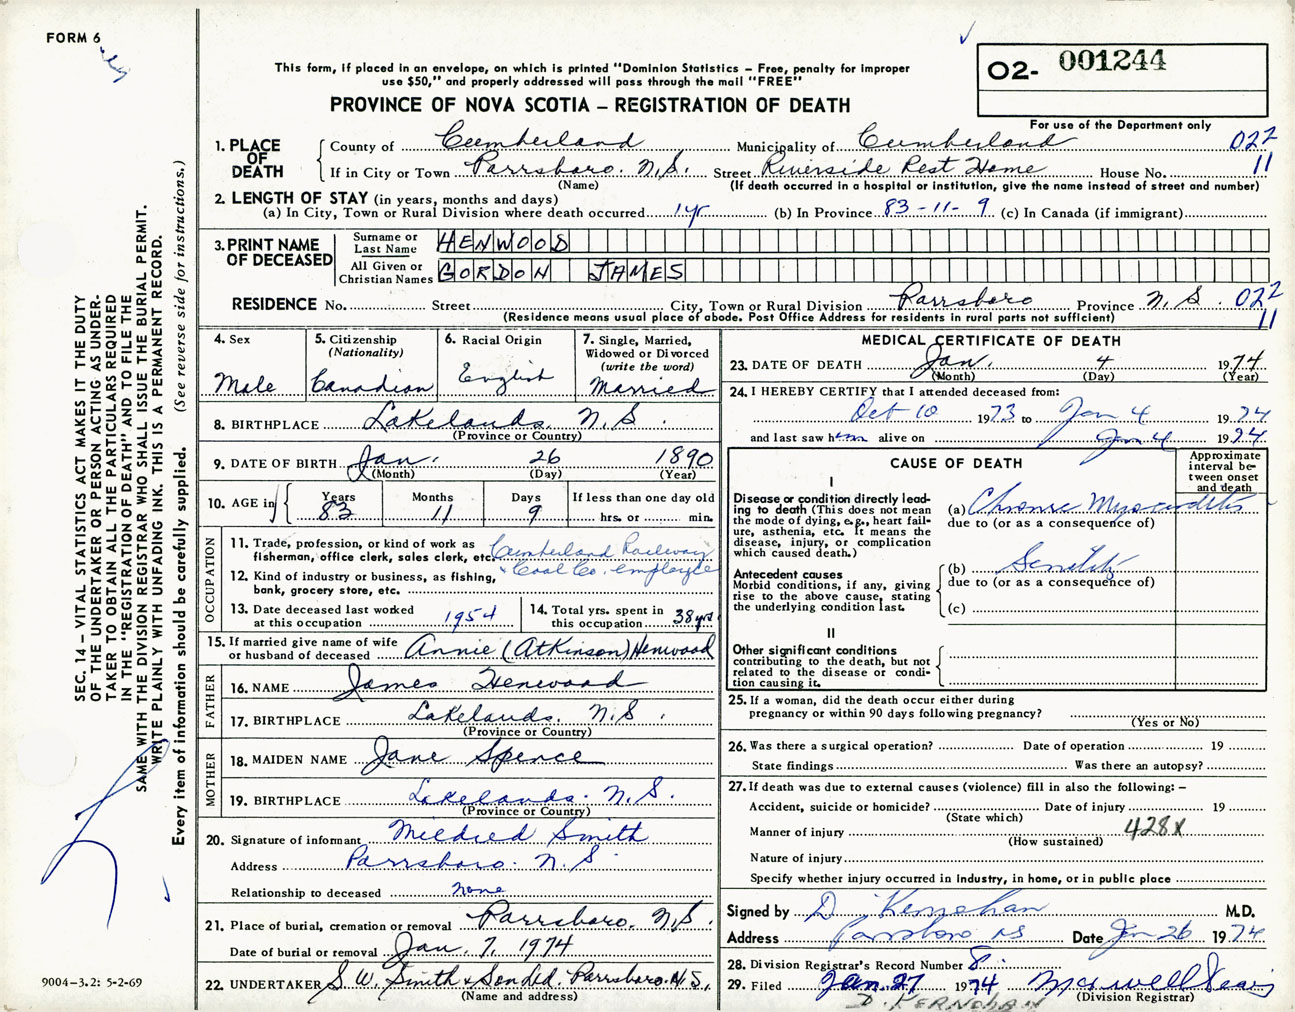 FORM 6
This form, if placed in an envelope, on which is printed "Dominion Statistics – Free, penalty for improper
use $50," and properly addressed will pass through the mail "FREE"
PROVINCE OF NOVA SCOTIA – REGISTRATION OF DEATH
O2- 001244
For use of the Department only
1. PLACE OF DEATH
County of Cumberland Municipality of Cumberland 022
If in City or Town Parrsboro. N.S. Street Riverside Rest Home House No. 11
(Name) (If death occurred in a hospital or institution, give the name instead of street and number)
2. LENGTH OF STAY (in years, months and days)
(a) In City, Town or Rural Division where death occurred 1 yr (b) In Province 83-11-9 (c) In Canada (if immigrant)
3. PRINT NAME OF DECEASED
Surname or Last Name HENWOOD
All Given or Christian Names GORDON JAMES
RESIDENCE No. Street City, Town or Rural Division Parrsboro Province N.S. 022
(Residence means usual place of abode. Post Office Address for residents in rural parts not sufficient) 11
4. Sex Male
5. Citizenship (Nationality) Canadian
6. Racial Origin English
7. Single, Married, Widowed or Divorced (write the word) Married
8. BIRTHPLACE Lakelands, N.S.
(Province or Country)
9. DATE OF BIRTH Jan. 26 1890
(Month) (Day) (Year)
10. AGE in Years 83 Months 11 Days 9 If less than one day old
hrs. or min.
OCCUPATION
11. Trade, profession, or kind of work as
fisherman, office clerk, sales clerk, etc. Cumberland Railway
12. Kind of industry or business, as fishing, & Coal Co. employee
bank, grocery store, etc.
13. Date deceased last worked
at this occupation 1954
14. Total yrs. spent in
this occupation 38 yrs
15. If married give name of wife
or husband of deceased Annie (Atkinson) Henwood
FATHER
16. NAME James Henwood
17. BIRTHPLACE Lakelands. N.S.
(Province or Country)
MOTHER
18. MAIDEN NAME Jane Spence
19. BIRTHPLACE Lakelands. N.S.
(Province or Country)
20. Signature of informant Mildred Smith
Address Parrsboro. N.S.
Relationship to deceased none
21. Place of burial, cremation or removal Parrsboro, N.S.
Date of burial or removal Jan. 7, 1974
22. UNDERTAKER S. W. Smith & Son Ltd. Parrsboro. N.S.
(Name and address)
MEDICAL CERTIFICATE OF DEATH
23. DATE OF DEATH Jan. 4 1974
(Month) (Day) (Year)
24. I HEREBY CERTIFY that I attended deceased from:
Oct 10 1973 to Jan 4 1974
and last saw him alive on Jan 4 1974
CAUSE OF DEATH
Approximate
interval be-
tween onset
and death
I
Disease or condition directly lead-
ing to death (This does not mean
the mode of dying, e.g., heart fail-
ure, asthenia, etc. It means the
disease, injury, or complication
which caused death.)
(a) Chronic Myocarditis
due to (or as a consequence of)
Antecedent causes
Morbid conditions, if any, giving
rise to the above cause, stating
the underlying condition last.
(b) Senility
due to (or as a consequence of)
(c)
II
Other significant conditions
contributing to the death, but not
related to the disease or condi-
tion causing it.
25. If a woman, did the death occur either during
pregnancy or within 90 days following pregnancy?
(Yes or No)
26. Was there a surgical operation? Date of operation 19
State findings Was there an autopsy?
27. If death was due to external causes (violence) fill in also the following: –
Accident, suicide or homicide? Date of injury 19
(State which) 428X
Manner of injury
(How sustained)
Nature of injury
Specify whether injury occurred in industry, in home, or in public place
Signed by D. Kernohan M.D.
Address Parrsboro NS Date Jan 26 1974
28. Division Registrar's Record Number 8.
29. Filed Jan. 27 1974
(Division Registrar)
D. KERNOHAN
SEC. 14 – VITAL STATISTICS ACT MAKES IT THE DUTY
OF THE UNDERTAKER OR PERSON ACTING AS UNDER-
TAKER TO OBTAIN ALL THE PARTICULARS REQUIRED
IN THE "REGISTRATION OF DEATH" AND TO FILE THE
SAME WITH THE DIVISION REGISTRAR WHO SHALL ISSUE THE BURIAL PERMIT.
WRITE PLAINLY WITH UNFADING INK. THIS IS A PERMANENT RECORD.
Every item of information should be carefully supplied. (See reverse side for instructions.)
9004–3.2: 5-2-69